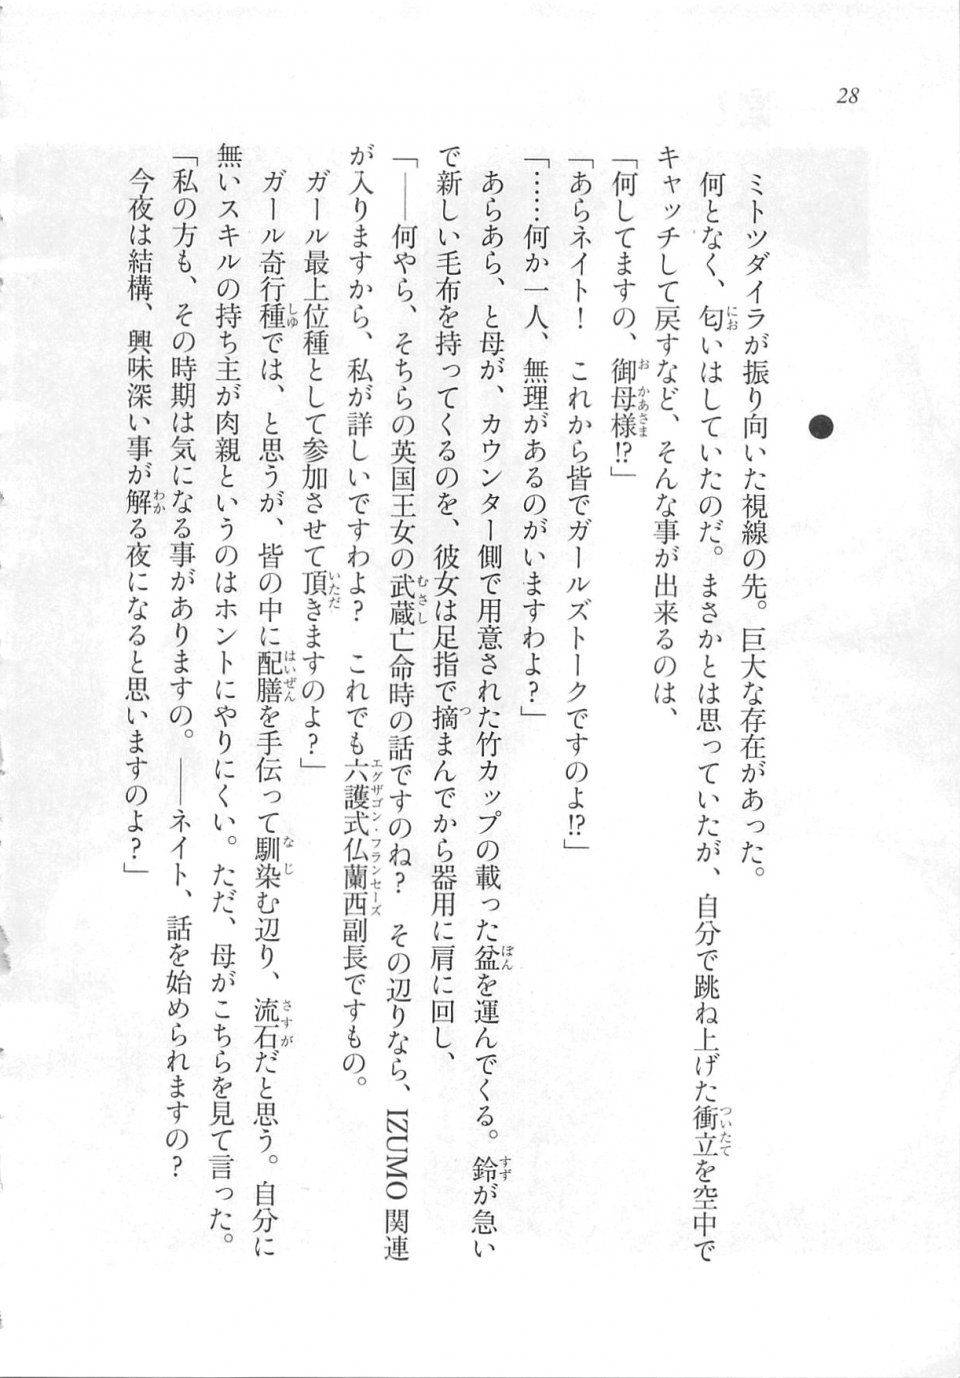 28
●
ミトツダイラが振り向いた視線の先。巨大な存在があった。
何となく、匂いはしていたのだ。まさかとは思っていたが、自分で跳ね上げた衝立を空中で
キャッチして戻すなど、そんな事が出来るのは、
「何してますの、御母様!?」
「あらネイト！　これから皆でガールズトークですのよ!?」
「……何か一人、無理があるのがいますわよ？」
あらあら、と母が、カウンター側で用意された竹カップの載った盆を運んでくる。鈴が急い
で新しい毛布を持ってくるのを、彼女は足指で摘まんでから器用に肩に回し、
「――何やら、そちらの英国王女の武蔵亡命時の話ですのね？　その辺りなら、IZUMO関連
が入りますから、私が詳しいですわよ？　これでも六護式仏蘭西副長ですもの。
ガール最上位種として参加させて頂きますのよ？」
ガール奇行種では、と思うが、皆の中に配膳を手伝って馴染む辺り、流石だと思う。自分に
無いスキルの持ち主が肉親というのはホントにやりにくい。ただ、母がこちらを見て言った。
「私の方も、その時期は気になる事がありますの。――ネイト、話を始められますの？
今夜は結構、興味深い事が解る夜になると思いますのよ？」